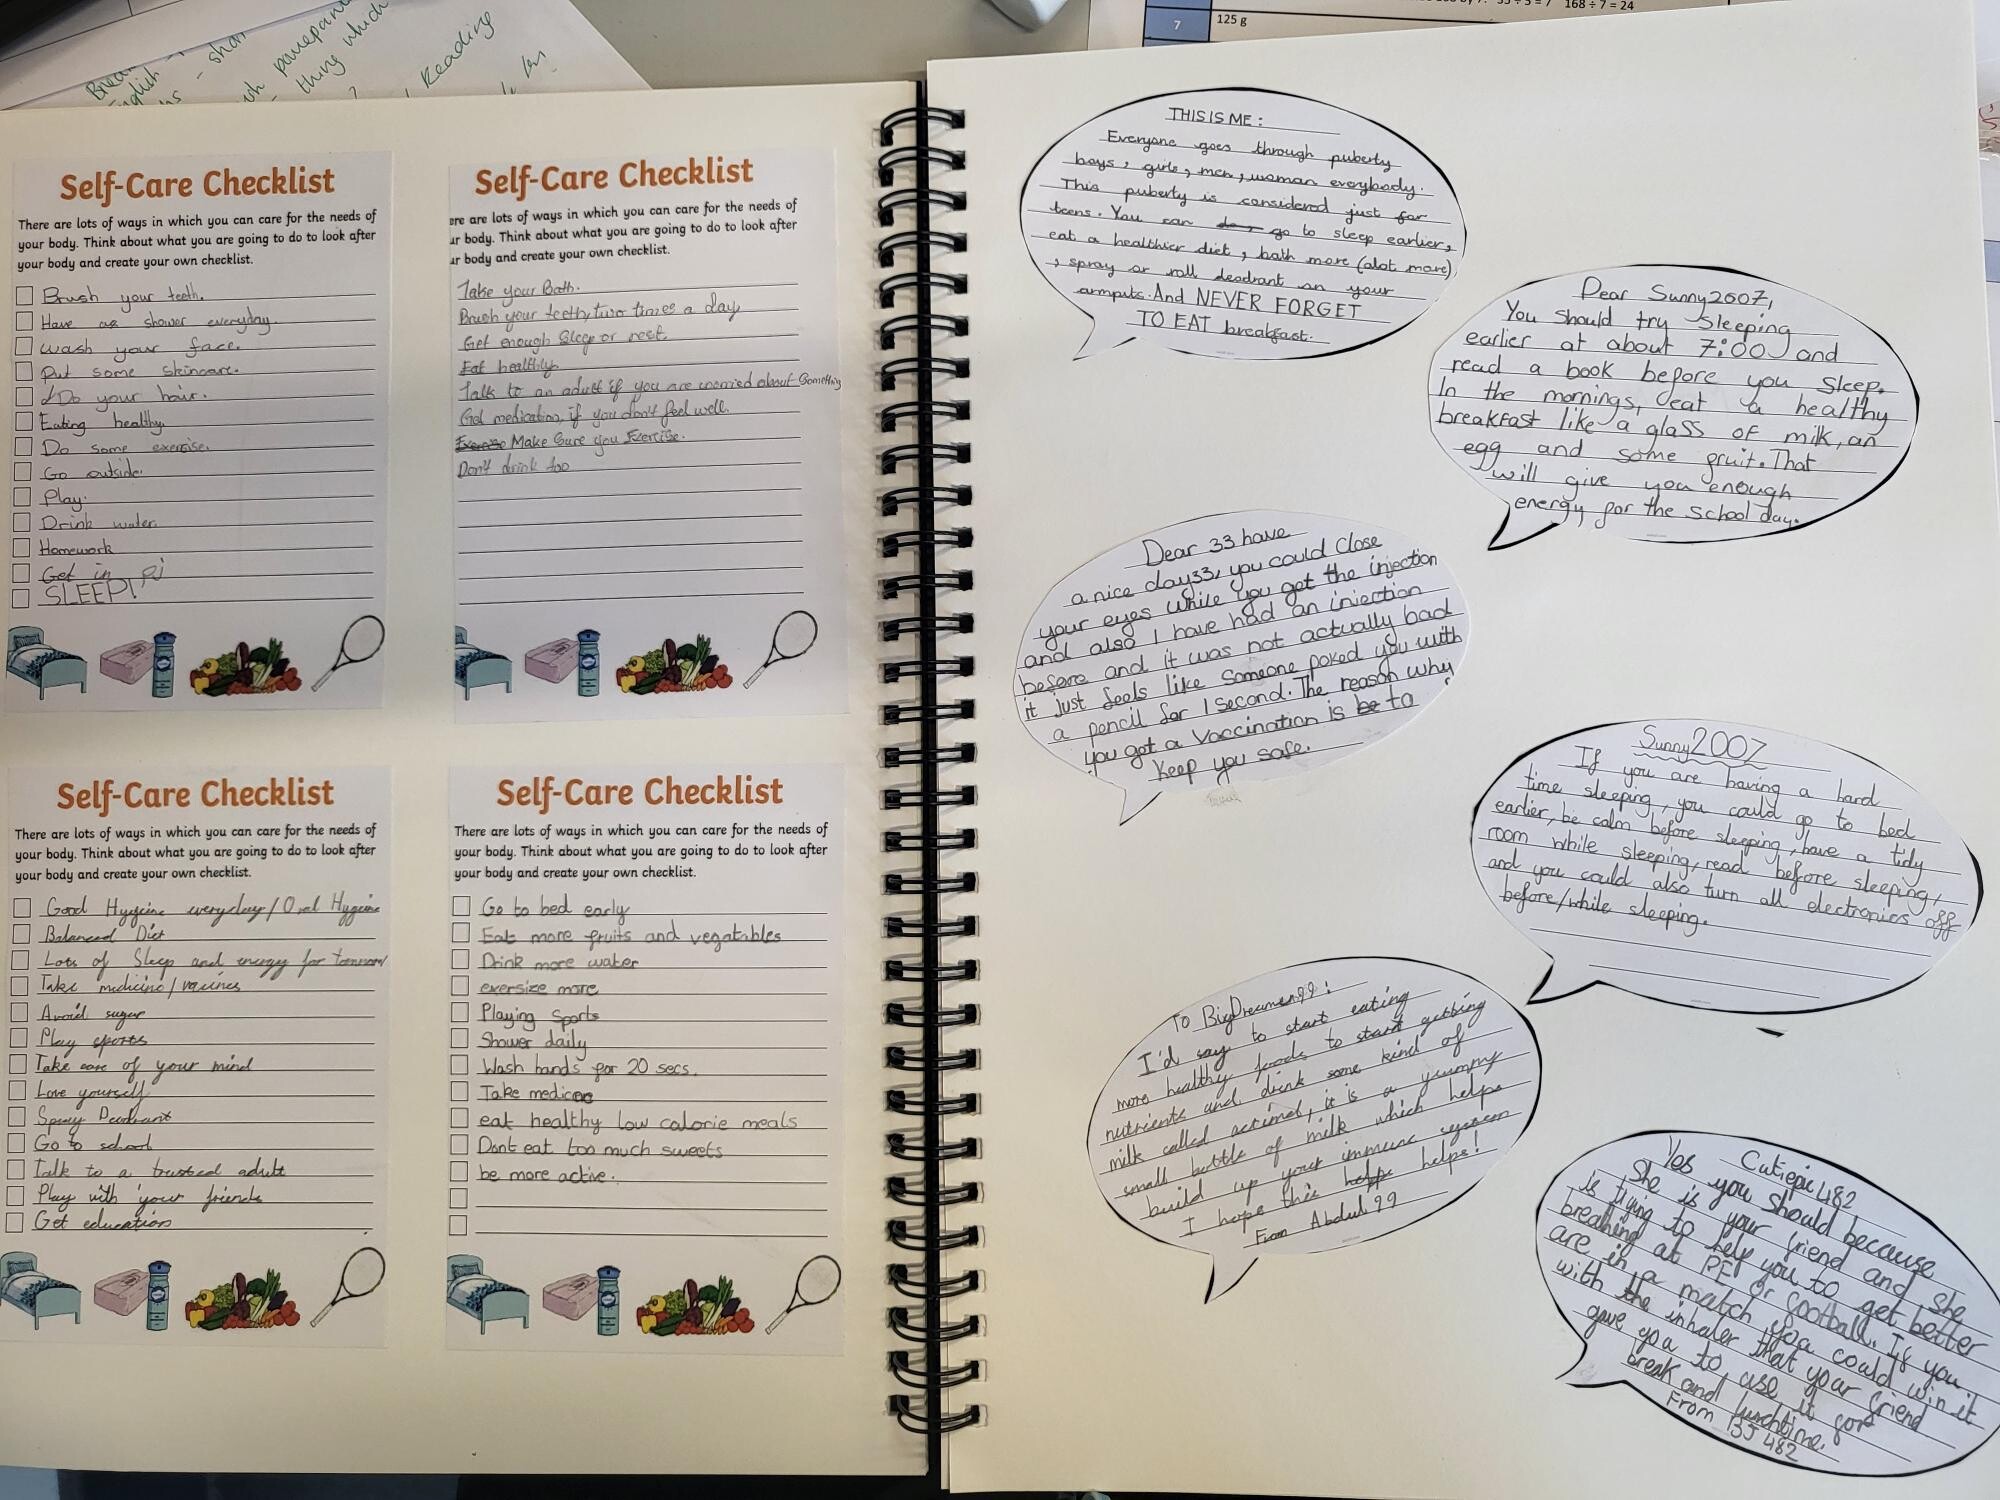 7
125 g
168 ÷ 7 = 24
English
Reading
thing which
Self-Care Checklist
There are lots of ways in which you can care for the needs of
your body. Think about what you are going to do to look after
your body and create your own checklist.
Brush your teeth.
Have a shower everyday.
Wash your face.
Put some skincare.
Do your hair.
Eating healthy
Do some exercise.
Go outside.
Play.
Drink water
Homework
Get in pj
SLEEP!
Self-Care Checklist
ere are lots of ways in which you can care for the needs of
ur body. Think about what you are going to do to look after
ur body and create your own checklist.
Take your Bath.
Brush your teeth, two times a day
Get enough Sleep or rest.
Eat healthily
Talk to an adult if you are worried about Something
Get medication, if you don't feel well.
Make Sure you Exercise.
Don't drink too
Self-Care Checklist
There are lots of ways in which you can care for the needs of
your body. Think about what you are going to do to look after
your body and create your own checklist.
Good Hygeine everyday/Oral Hygeine
Balanced Diet
Lots of Sleep and energy for
Take medicine/
Avoid sugar
Play sports
Take care of your mind
Love yourself
Spray
Go to school
Talk to a trusted adult
Play with your friends
Get education
Self-Care Checklist
There are lots of ways in which you can care for the needs of
your body. Think about what you are going to do to look after
your body and create your own checklist.
Go to bed early
Eat more fruits and vegatables
Drink more water
exersize more
Playing Sports
Shower daily
Wash hands for 20 secs.
Take
eat healthy low calorie meals
Dont eat too much sweets
be more active.
THIS IS ME:
Everyone goes through puberty
boys, girls, men, woman everybody.
This puberty is considered just for
teens. You can go to sleep earlier,
eat a healthier diet, bath more (alot more)
, spray or roll deodrant on your
armputs. And NEVER FORGET
TO EAT breakfast.
Dear Sunny2007,
You should try Sleeping
earlier at about 7:00 and
read a book before you sleep.
In the mornings, eat a healthy
breakfast like a glass of milk, an
egg and some fruit. That
will give you enough
energy for the school day.
Dear 33 have
a nice day33, you could close
your eyes while you get the injection
and also I have had an injection
before and it was not actually bad
it just feels like someone poked you with
a pencil for 1 second. The reason why
you got a vaccination is be to
keep you safe.
Sunny2007
If you are having a hard
time sleeping, you could go to bed
earlier, be calm before sleeping, have a tidy
room while sleeping, read before sleeping,
and you could also turn all electronics off
before/while sleeping.
To BigDreamer99:
I'd say to start eating
more healthy foods to start getting
nutrients and drink some kind of
milk called actimel, it is a yummy
small bottle of milk which helps
build up your immune system
I hope this helps!
From Abdul99
Cutiepie482
Yes you should because
She is your friend and she
is trying to help you to get better
breathing at PE or football. If you
are in a match you could win it
with the inhaler that your friend
gave you to use it for
break and lunchtime.
From BJ 482